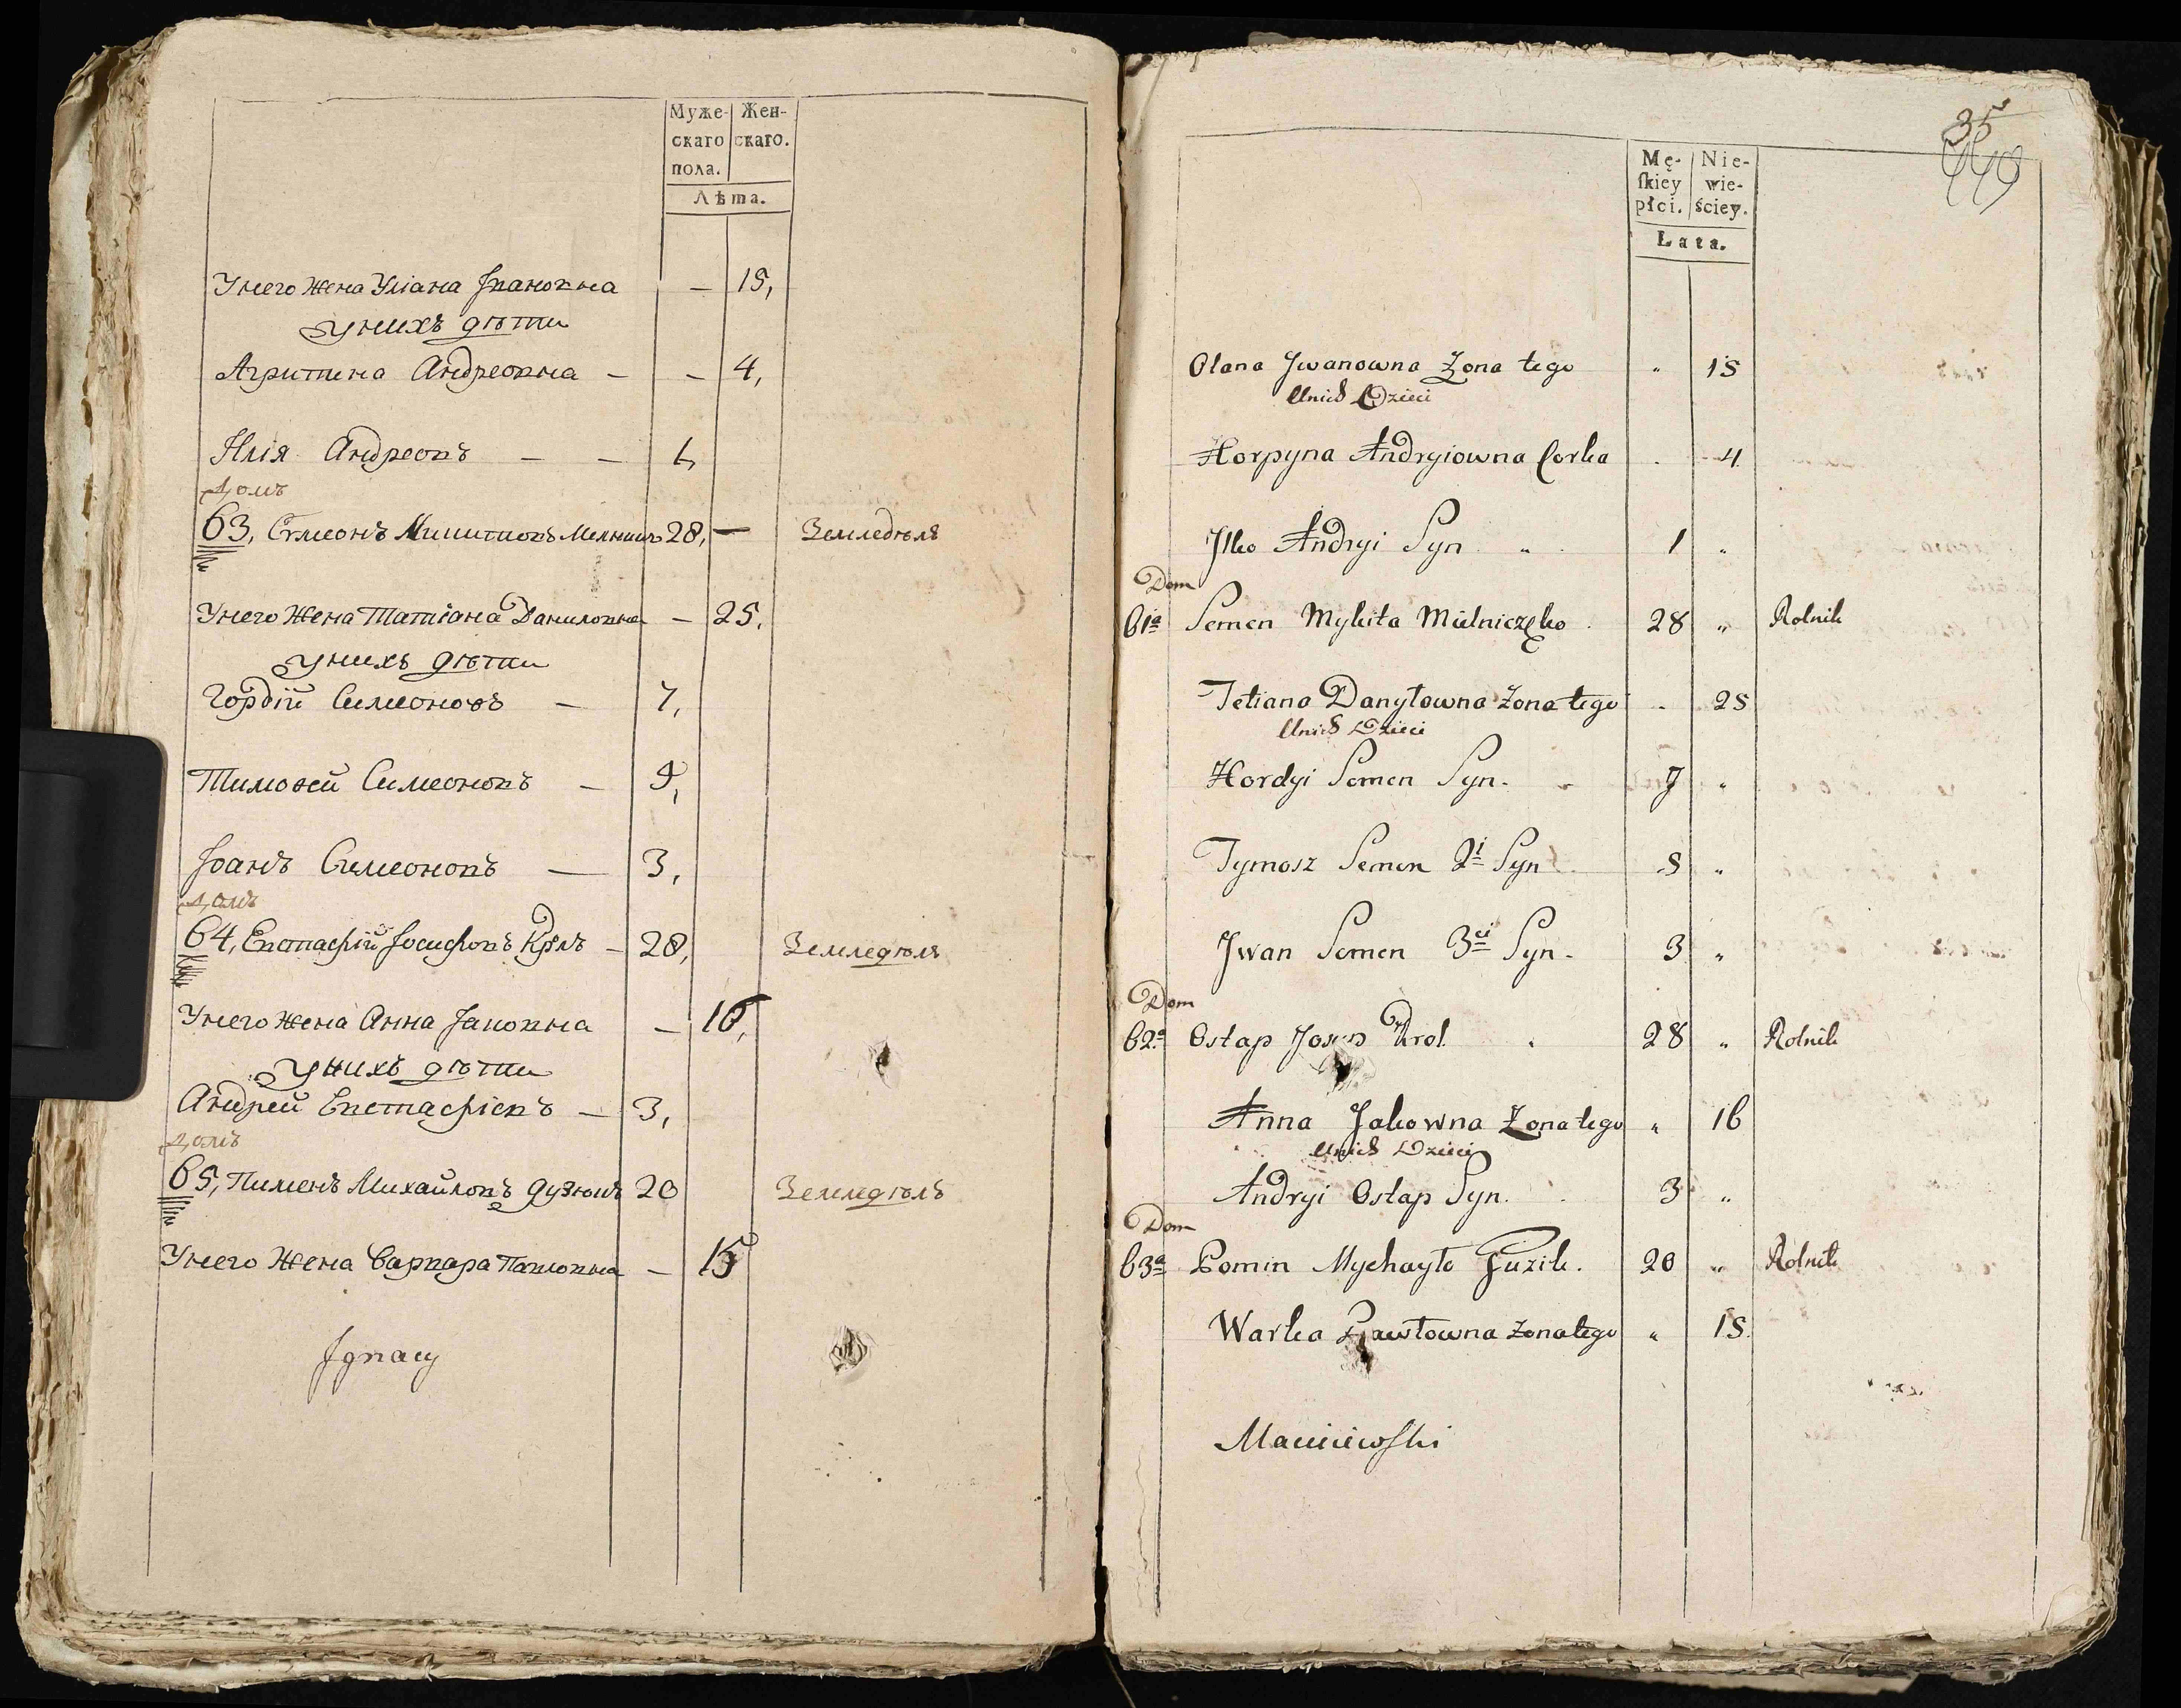 Муже-
скаго
пола.
Жен-
скаго.
Лѣта.
Унего жена Уліана Івановна — 15,
унихъ дѣти
Агрипина Андреовна — — 4,
Илія Андреовъ — — 1,
домъ
63, Сѵмеонъ 28, — Земледѣлъ
Унего жена Татіана Даниловна — 25,
унихъ дѣти
Гордій Симеоновъ — 7,
Тимоѳей Симеоновъ —
Іоанъ Симеоновъ — 3,
домъ
64, Евстафій Іосифовъ Крлъ — 28, Земледѣлъ
Унего жена Анна Іаковна — 16,
унихъ дѣти
Андрей Евстафіевъ — 3,
домъ
65, Пименъ Михайловъ 20 Земледѣлъ
Унего жена Варвара Павловна — 15
Ignacy
35
Mę-
ſkiey
płci.
Nie-
wie-
ściey.
Lata.
Olana Jwanowna Żona tego " 15
Unich Dzieci
Horpyna Andryiowna Corka . 4
Jlko Andryi Syn " 1 "
Dom
61a Semen Mykita Mielniczęko . 28 " Rolnik
Tetiana Danyłowna Żona tego . 25
Unich Dzieci
Hordyi Semen Syn - 7 "
Tymosz Semen 2i Syn 5 "
Jwan Semen 3ci Syn - 3 "
Dom
62a Ostap Josyp Krol 28 " Rolnik
Anna Jakowna Żona tego " 16
Unich Dzieci
Andryi Ostap Syn. 3 "
Dom
63a Pomin Mychayło Guzik. 20 " Rolnik
Warka Pawłowna Żona tego " 15.
Macieiewſki